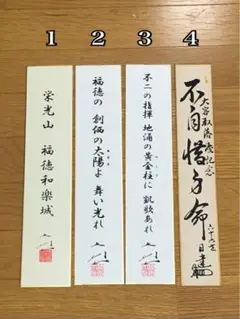 1 2 3 4
栄光山 福徳和樂城
福徳の 創価の太陽よ 舞い光れ
不二の指揮 地涌の黄金柱に 凱歌あれ
大客殿落慶記念
不自惜身命
日達